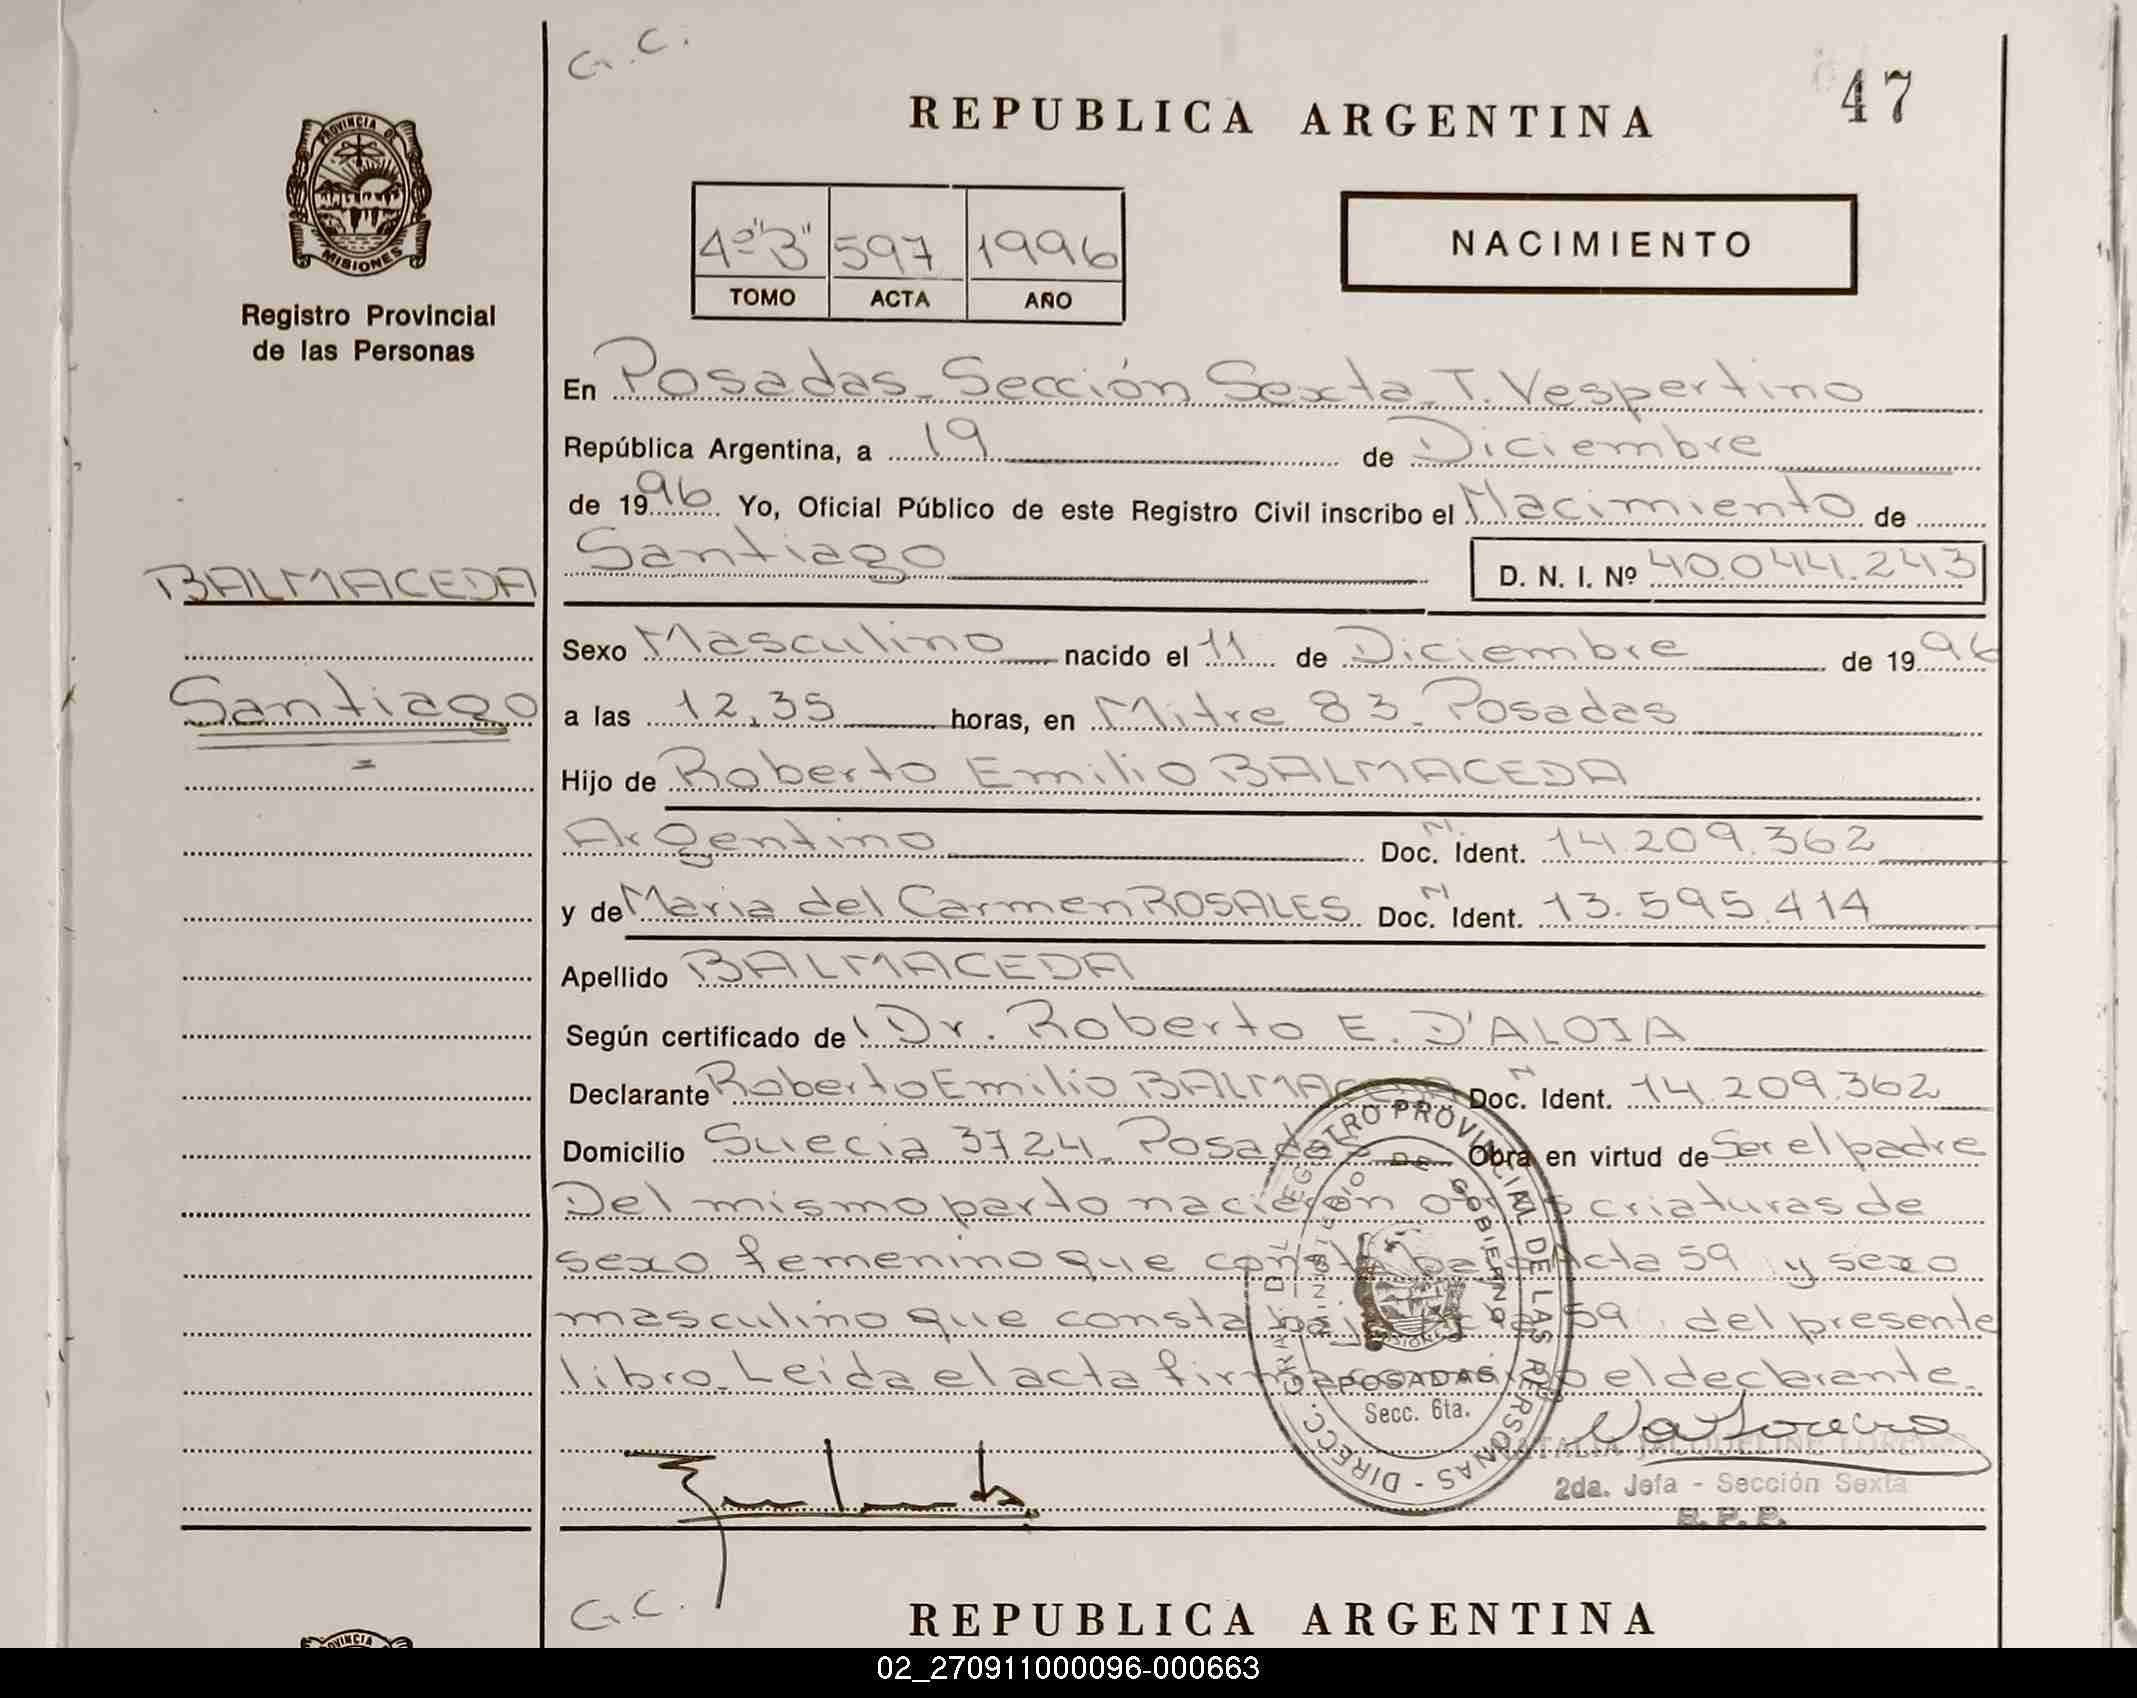 G. C.
REPUBLICA ARGENTINA
47
PROVINCIA DE
MISIONES
Registro Provincial
de las Personas
4º "B" 597 1996
TOMO ACTA AÑO
NACIMIENTO
En Posadas - Sección Sexta - T. Vespertino
República Argentina, a 19 de Diciembre
de 1996 Yo, Oficial Público de este Registro Civil inscribo el Nacimiento de
Santiago D. N. I. Nº 40.044.243
BALMACEDA
Sexo Masculino nacido el 11 de Diciembre de 1996
Santiago
a las 12,35 horas, en Mitre 83 - Posadas
Hijo de Roberto Emilio BALMACEDA
Argentino Doc. N. Ident. 14.209.362
y de Maria del Carmen ROSALES Doc. N. Ident. 13.595.414
Apellido BALMACEDA
Según certificado de Dr. Roberto E. D'ALOIA
Declarante Roberto Emilio BALMACEDA Doc. N. Ident. 14.209.362
Domicilio Suecia 3724 - Posadas Obra en virtud de Ser el padre
Del mismo parto nacieron criaturas de
sexo femenino que Acta 59 y sexo
masculino que consta bajo Acta 59 del presente
libro. Leida el acta el declarante.
DIRECC. GRAL. DEL REGISTRO PROVINCIAL DE LAS PERSONAS
MINISTERIO DE GOBIERNO
MISIONES
POSADAS
Secc. 6ta.
NATALIA JACQUELINE
2da. Jefa - Sección Sexta
R. P. P.
G. C.
REPUBLICA ARGENTINA
02_270911000096-000663